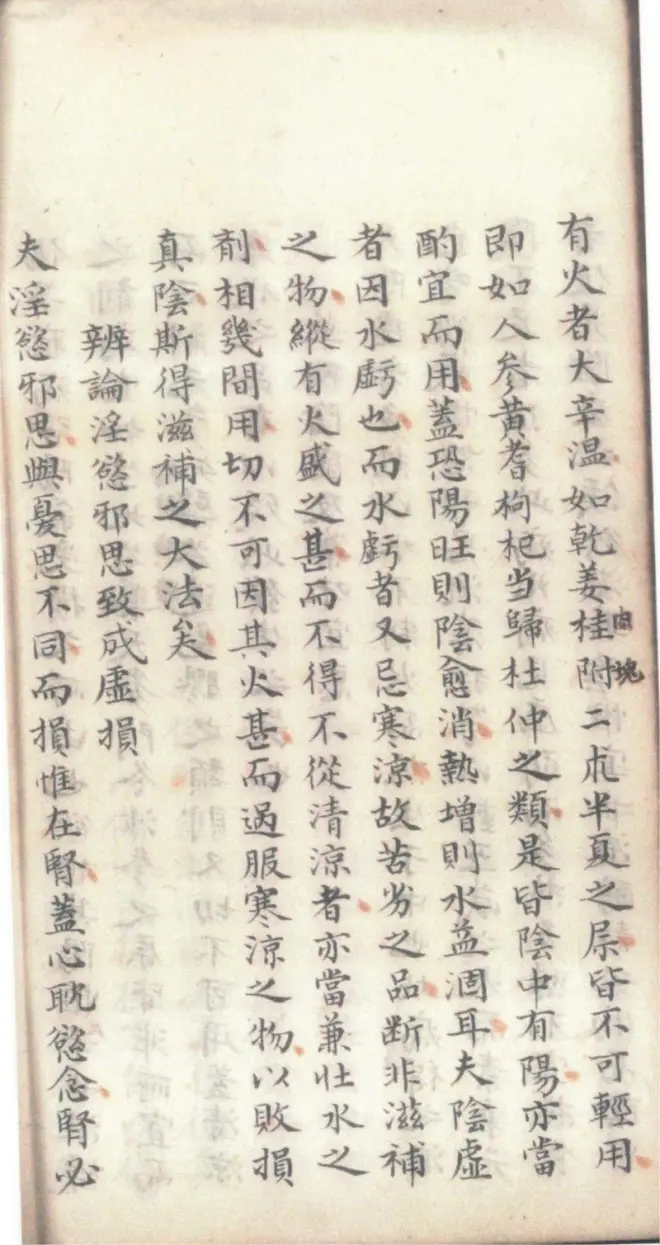 有火者大辛温如乾姜桂附二朮半夏之屬皆不可輕用
即如人參黃耆枸杞当歸杜仲之類是皆陰中有陽亦當
酌宜而用蓋恐陽旺則陰愈消熱增則水益涸耳夫陰虛
者因水虧也而水虧者又忌寒涼故苦劣之品断非滋補
之物縱有火盛之甚而不得不從清涼者亦當兼壯水之
剤相幾間用切不可因其火甚而過服寒涼之物以敗損
真陰斯得滋補之大法矣
辨論淫慾邪思致成虛損
夫淫慾邪思與憂思不同而損惟在腎蓋心耽慾念腎必